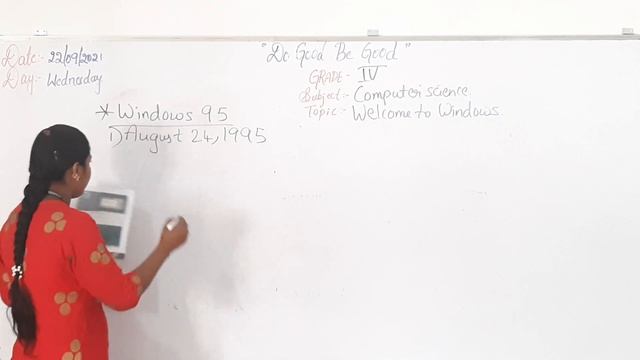 Date:- 22/09/2021
Day:- Wednesday
"Do Good Be Good"
GRADE - IV
Subject:- Computer science
Topic:- Welcome to Windows
* Windows 95
1) August 24, 1995